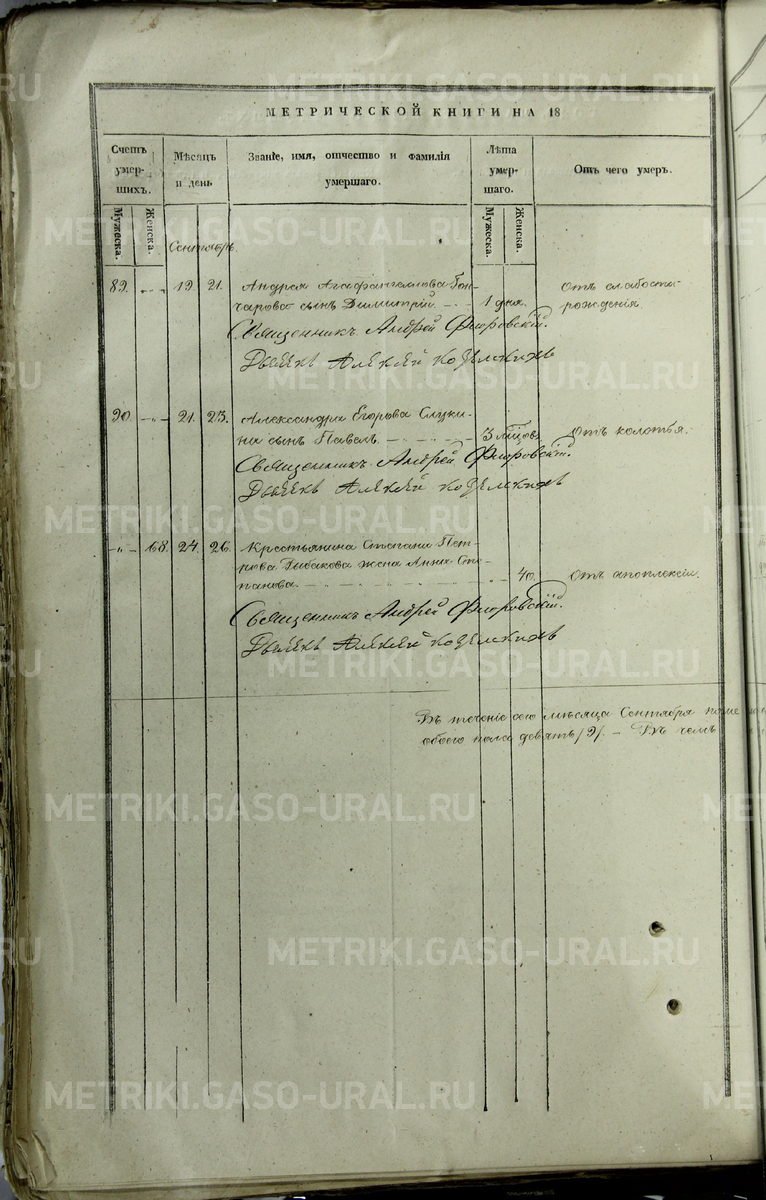 МЕТРИЧЕСКОЙ КНИГИ НА 18
Счетъ умер-шихъ.
Мѣсяцъ и день
Званіе, имя, отчество и фамилія умершаго.
Лѣта умер-шаго.
Отъ чего умеръ.
Мужеска. Женска. Мужеска. Женска.
Сентябрь.
89. 19 21. Андрея Агафангелова Гон-
чарова сынъ Димитрій. 1 дня. Отъ слабости
рожденія
Священникъ Андрей Флоровскій.
Дьячекъ Алексѣй
90 21. 23. Александра Егорова
на сынъ Павелъ 3 мѣсяц. Отъ колотья.
Священникъ Андрей Флоровскій.
Дьячекъ Алексѣй
68. 24. 26. Крестьянина Степана Пет-
рова жена Анна Сте-
панова. 40. Отъ апоплексіи.
Священникъ Андрей Флоровскій.
Дьячекъ Алексѣй
Въ теченіе сего мѣсяца Сентября
обоего пола девять /9/. — Въ чемъ
METRIKI.GASO-URAL.RU